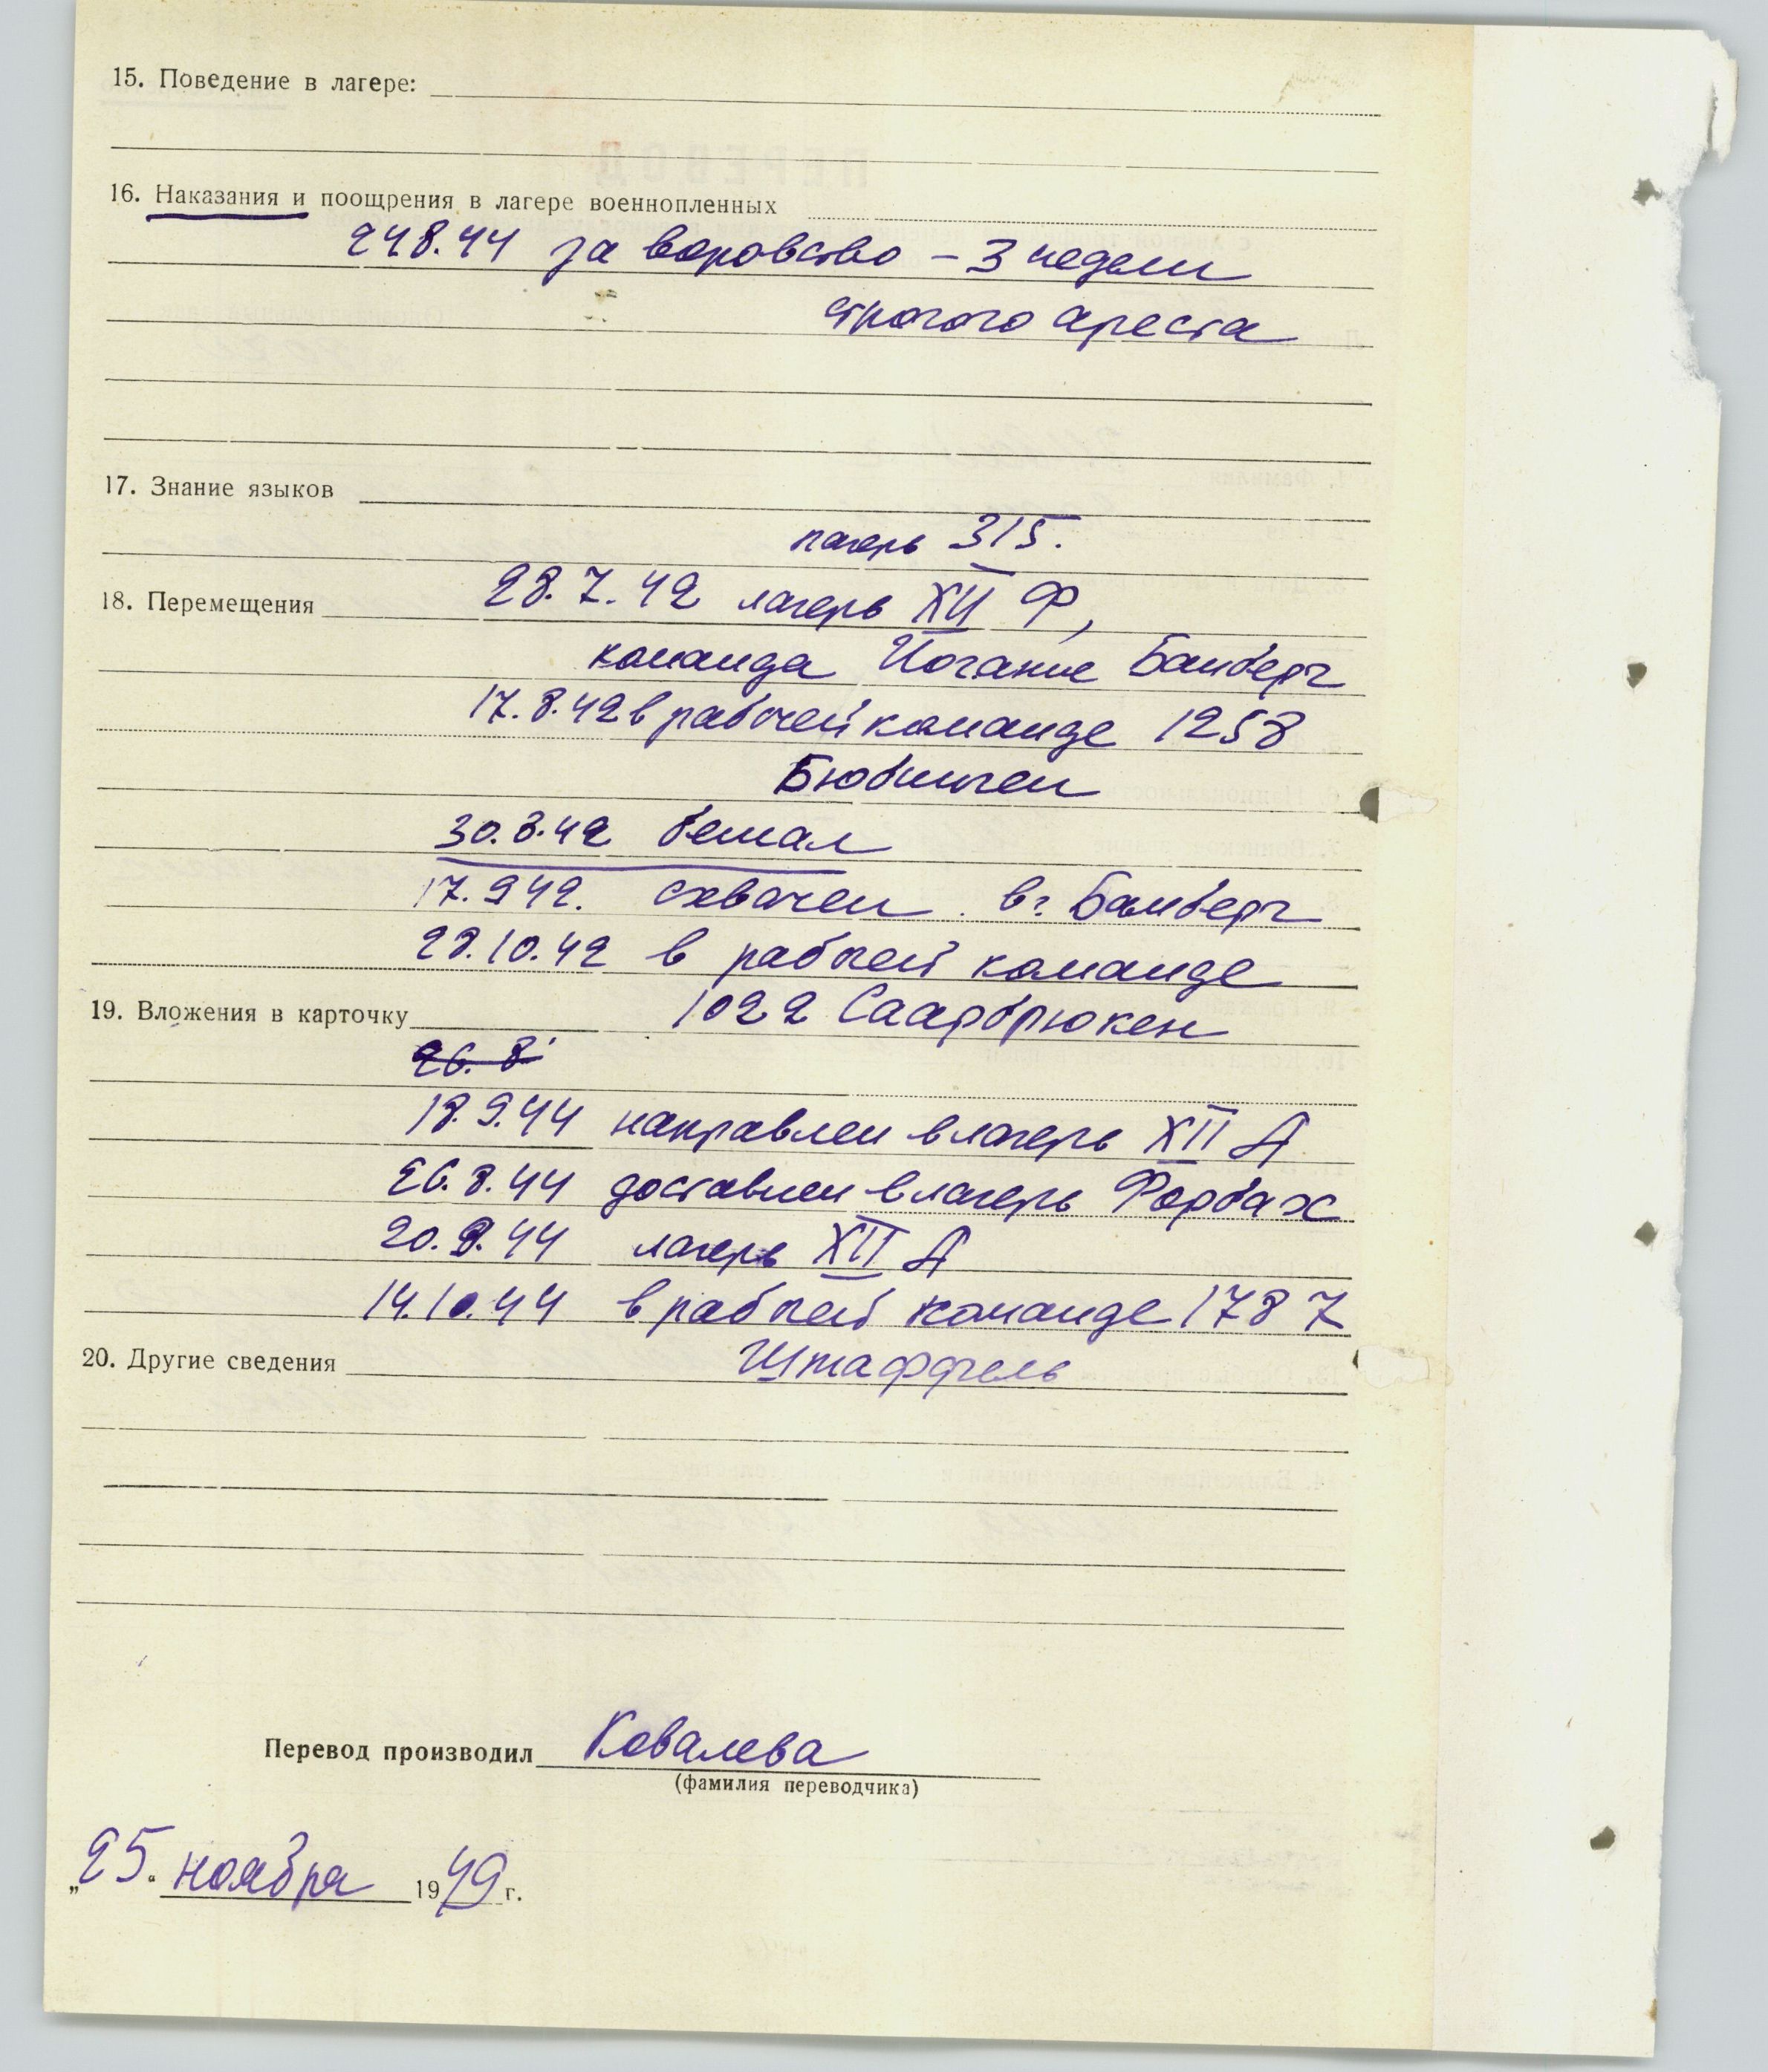 15. Поведение в лагере:
16. Наказания и поощрения в лагере военнопленных
24.8.44 за воровство – 3 недели
строгого ареста
17. Знание языков
лагерь 315.
18. Перемещения 28.7.42 лагерь XII Ф,
команда Иоганис Бамберг
17.8.42 в рабочей команде 1258
Бюбинген
30.8.42 бежал
17.9.42. схвачен в г. Бамберг
28.10.42 в рабочей команде
19. Вложения в карточку 1022 Саарбрюкен
26. 8
18.9.44 направлен в лагерь XII А
26.8.44 доставлен в лагерь Форбах
20.9.44 лагерь XII А
14.10.44 в рабочей команде 1787
20. Другие сведения Штаффель
Перевод производил Ковалева
(фамилия переводчика)
„25" ноября 1949 г.